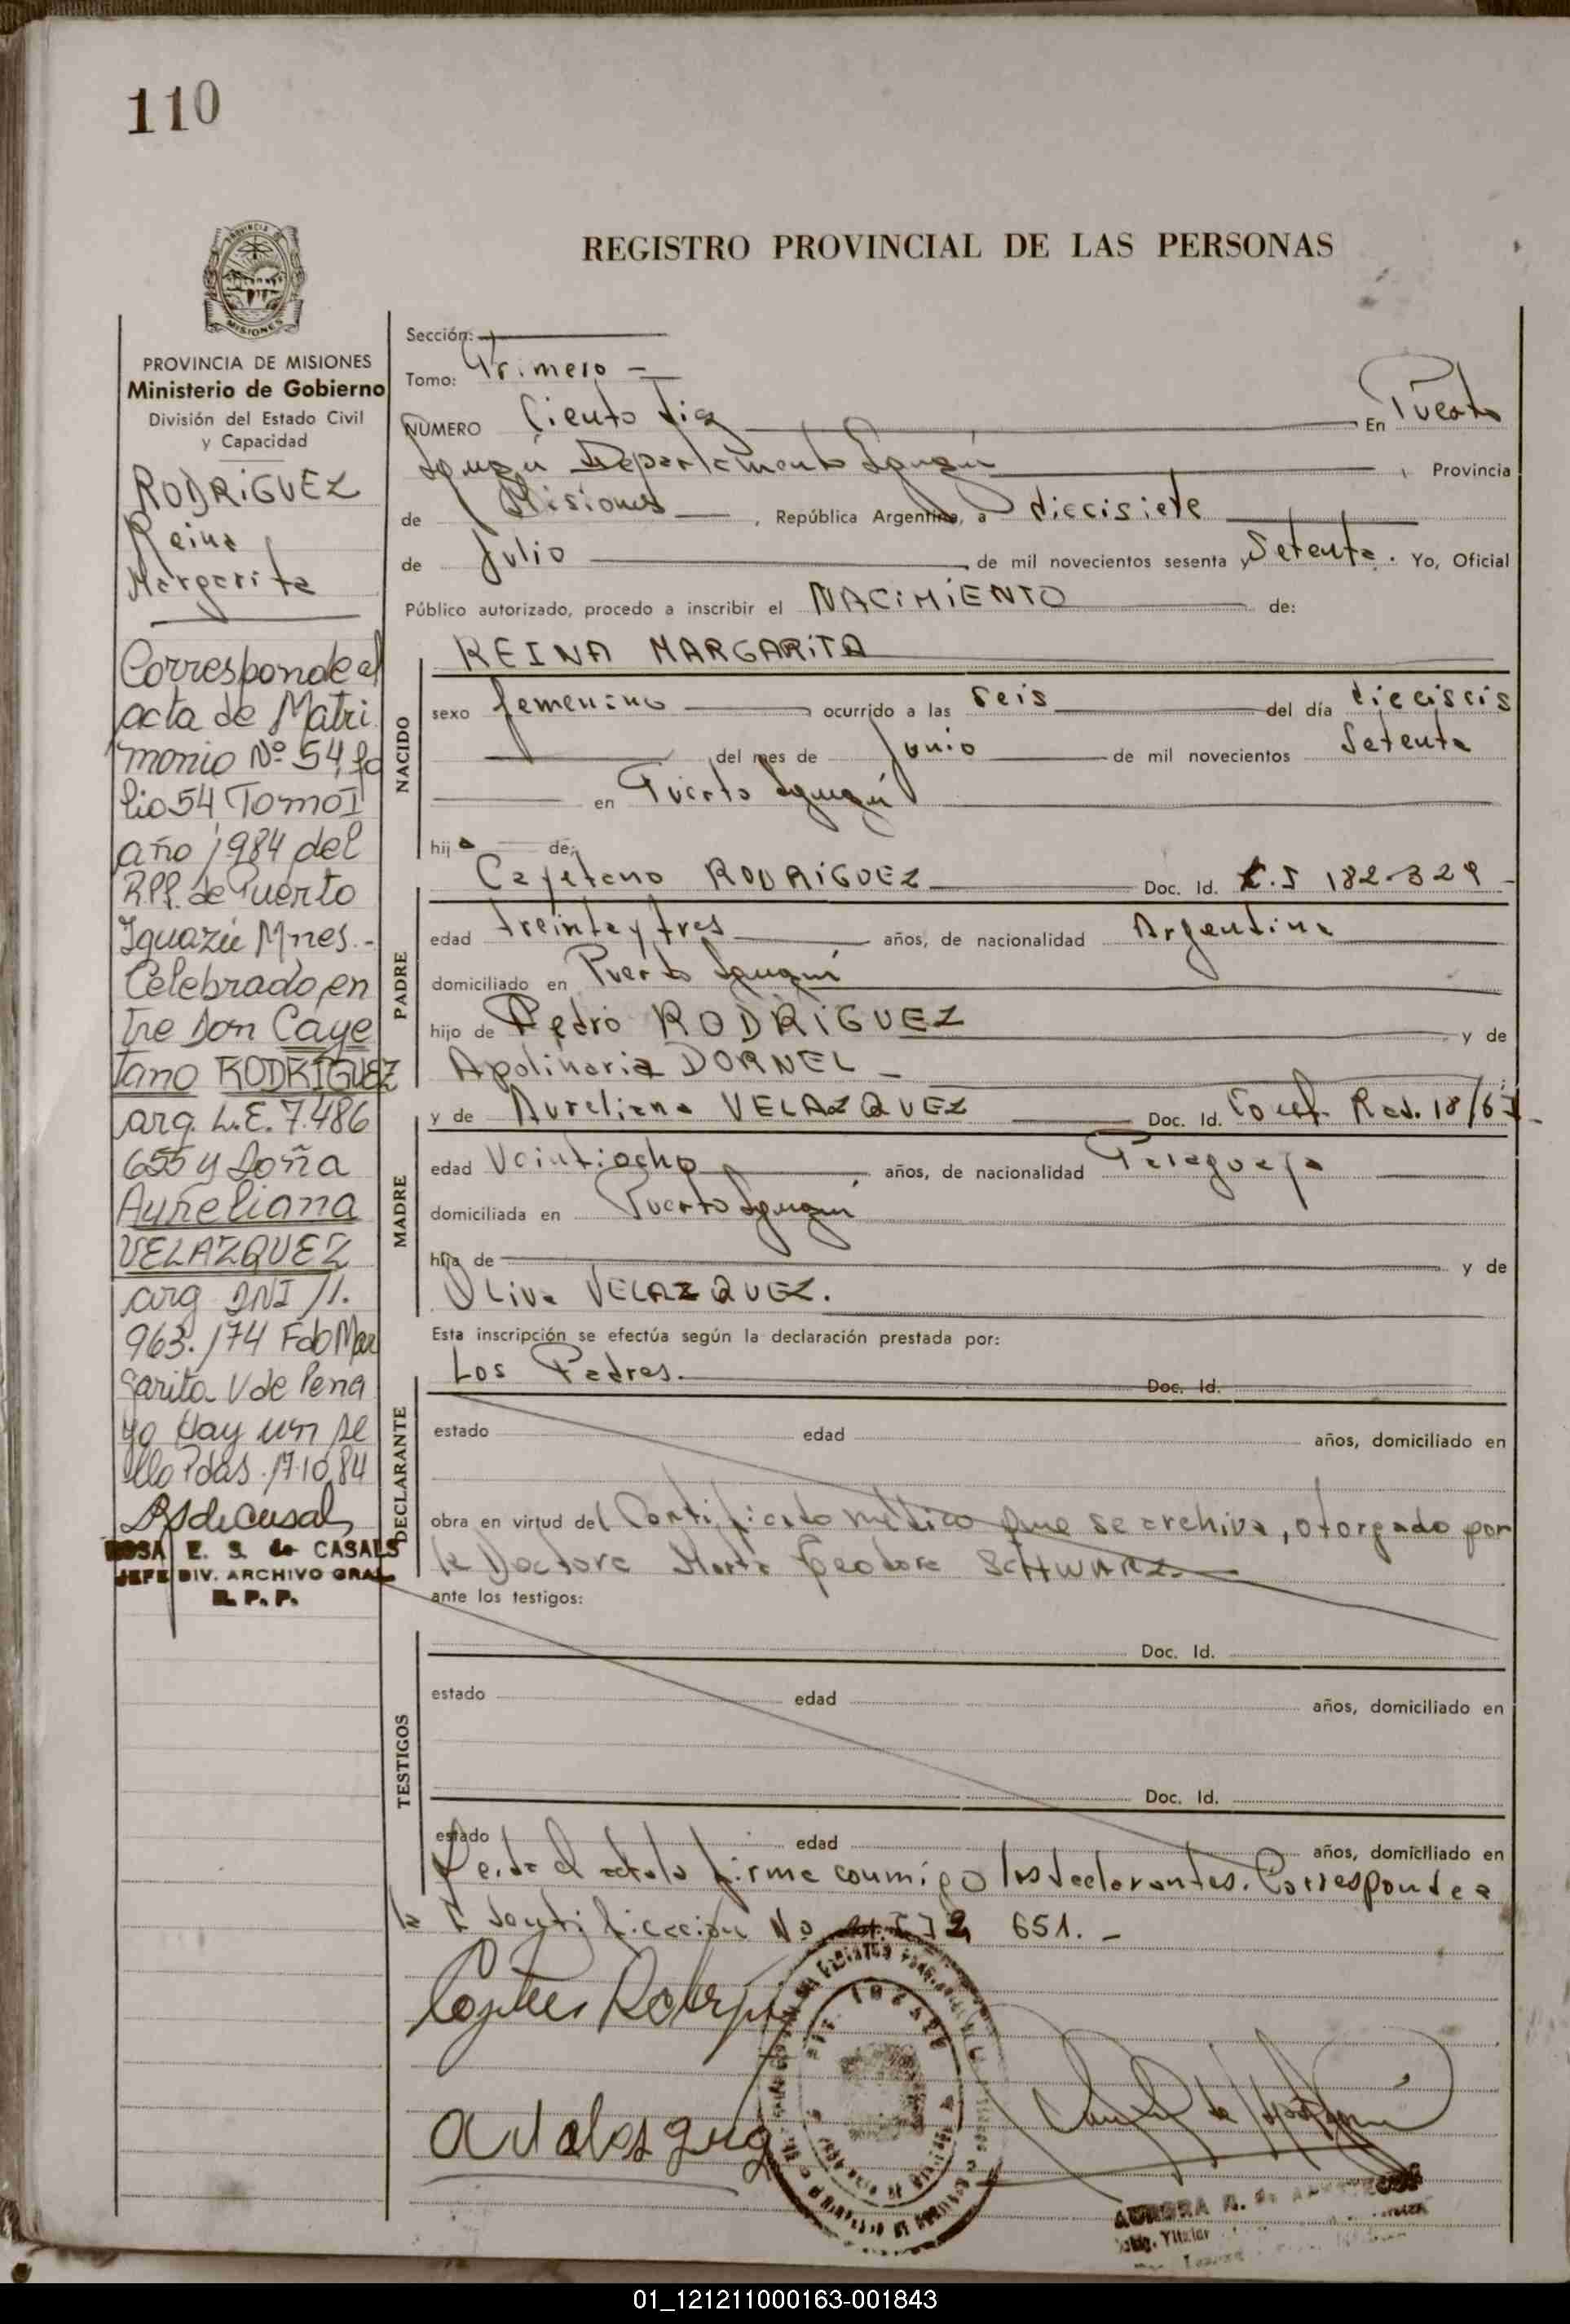 110
REGISTRO PROVINCIAL DE LAS PERSONAS
MISIONES
PROVINCIA DE MISIONES
Ministerio de Gobierno
División del Estado Civil
y Capacidad
RODRIGUEZ
Reina
Margarita
Corresponde al
acta de Matri
monio Nº 54, fo
lio 54 Tomo I
año 1984 del
R.P.P. de Puerto
Iguazú Mnes.-
Celebrado en
tre Don Caye
tano RODRIGUEZ
arg. L.E. 7.486
655 y Doña
Aureliana
VELAZQUEZ
arg DNI 11.
963.174 Fdo Mar
garita V de Pena
yo Hay un se
llo Pdas. 17.10.84
ROSA E. S. de CASALS
JEFE DIV. ARCHIVO GRAL
R. P. P.
Sección:
Tomo: Primero -
NUMERO Ciento diez En Puerto
Iguazú Departamento Iguazú , Provincia
de Misiones , República Argentina, a diecisiete
de Julio de mil novecientos sesenta y Setenta. Yo, Oficial
Público autorizado, procedo a inscribir el NACIMIENTO de:
REINA MARGARITA
NACIDO
sexo femenino ocurrido a las seis del día dieciseis
del mes de Junio de mil novecientos Setenta
en Puerto Iguazú
hija de:
PADRE
Cayetano RODRIGUEZ Doc. Id. C.I 182.329
edad treinta y tres años, de nacionalidad Argentina
domiciliado en Puerto Iguazú
hijo de Pedro RODRIGUEZ y de
Apolinaria DORNEL -
MADRE
y de Aureliana VELAZQUEZ Doc. Id. Cert. Rad. 18/67
edad Veintiocho años, de nacionalidad Paraguaya
domiciliada en Puerto Iguazú
hija de y de
Oliva VELAZQUEZ.
Esta inscripción se efectúa según la declaración prestada por:
DECLARANTE
Los Padres. Doc. Id.
estado edad años, domiciliado en
obra en virtud del Certificado médico que se archiva, otorgado por
la Doctora Marta Teodora SCHWARZ.
ante los testigos:
TESTIGOS
Doc. Id.
estado edad años, domiciliado en
Doc. Id.
estado edad años, domiciliado en
Leida el acta la firma conmigo los declarantes. Corresponde a
la Identificación No 651.-
AURORA
01_121211000163-001843